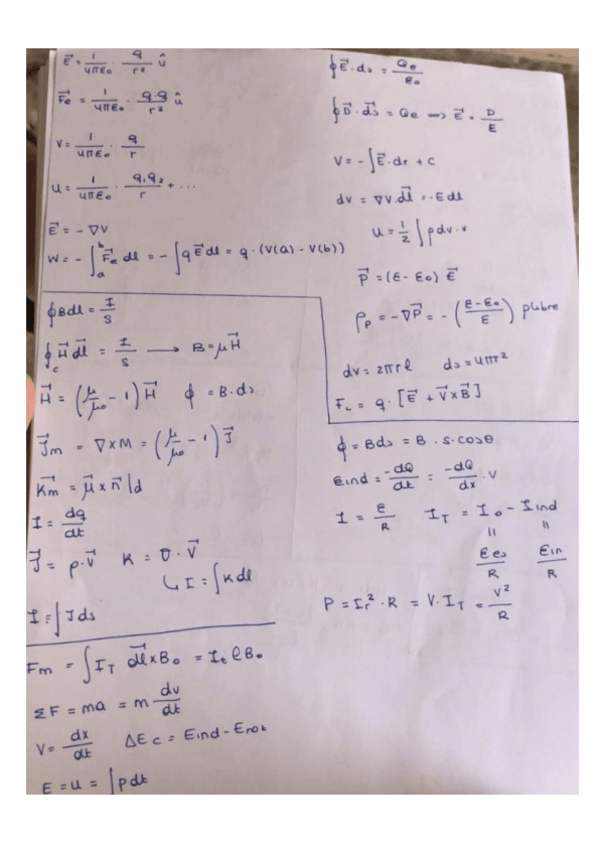 E⃗ = 1/4πε₀ · q/r² û
F⃗e = 1/4πε₀ · q·q/r² û
V = 1/4πε₀ · q/r
U = 1/4πε₀ · q₁q₂/r + ...
E⃗ = - ∇V
W = - ∫ₐᵇ F⃗e dl = - ∫ q E⃗ dl = q · (V(a) - V(b))
∮ E⃗ · ds = Qe/ε₀
∮ D⃗ · d⃗s = Qe ⟹ E⃗ = D/E
V = - ∫ E⃗ · dr + C
dv = ∇V · d⃗l = - E dl
u = 1/2 ∫ ρ dv · v
P⃗ = (ε - ε₀) E⃗
ρp = - ∇P⃗ = - (ε - ε₀/ε) ρlibre
dv = 2πrl ds = 4πr²
F_L = q · [E⃗ + V⃗ x B⃗]
∮ B dl = I/S
∮c H⃗ d⃗l = I/S → B = μH⃗
M⃗ = (μ/μ₀ - 1) H⃗ ϕ = B · ds
J⃗m = ∇ x M = (μ/μ₀ - 1) J⃗
K⃗m = μ⃗ x n⃗ |d
I = dq/dt
J⃗ = ρ · V⃗ K = σ · V⃗
↳ I = ∫ K dl
I = ∫ J ds
ϕ = B ds = B · S · cosθ
εind = -dQ/dt = -dQ/dx · v
I = ε/R I_T = I₀ - Iind
= =
εes/R εin/R
P = Ir² · R = V · I_T = V²/R
Fm = ∫ I_T d⃗l x B₀ = I_t l B₀
ΣF = ma = m dv/dt
V = dx/dt ΔEc = Eind - Erot
E = u = ∫ p dt